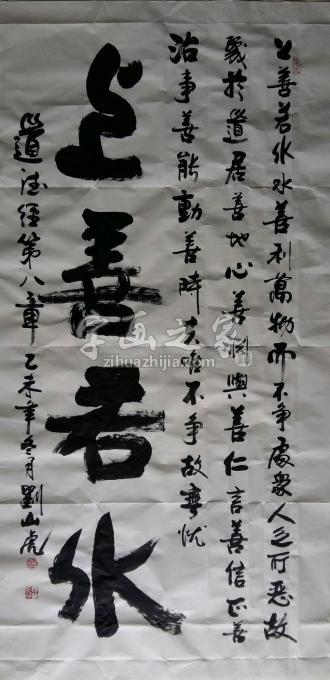 上善若水水善利萬物而不争處衆人之所惡故
幾於道居善地心善渊與善仁言善信正善
治事善能動善時夫唯不争故無忧
上善若水
道德经第八章乙未年冬月劉山虎
字画之家
zihuazhijia.com